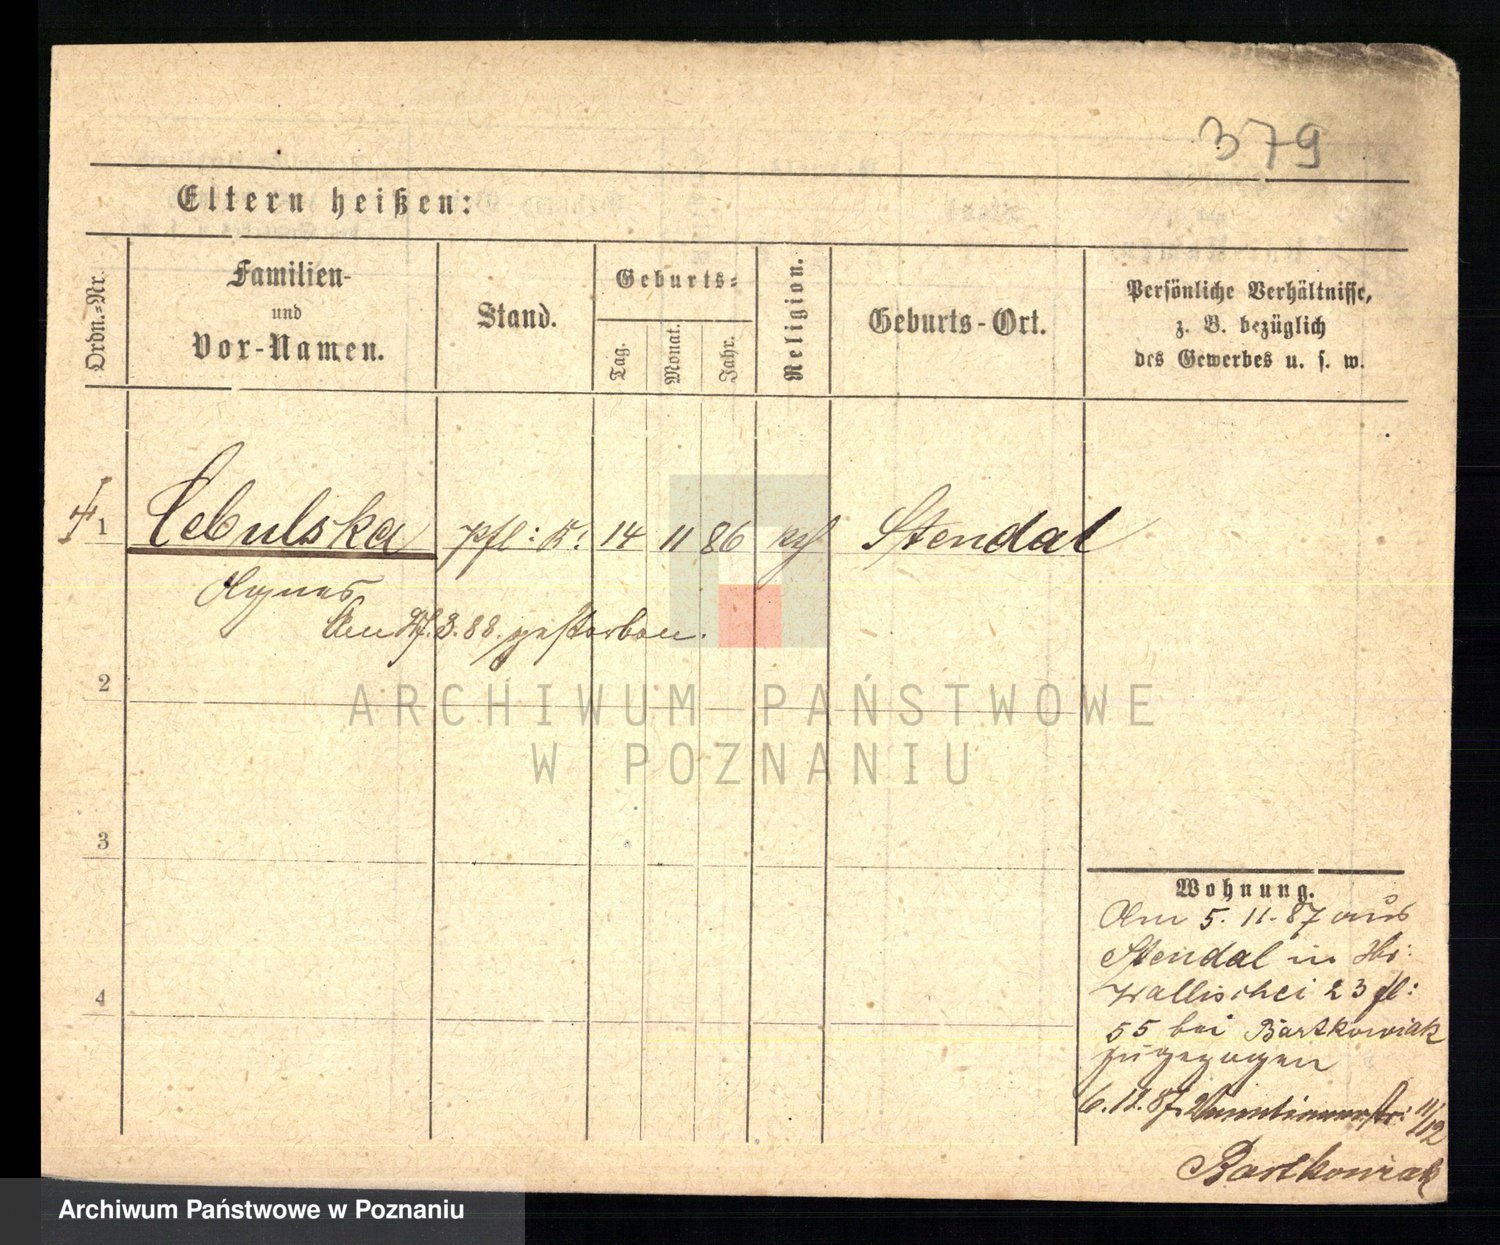 379
Eltern heißen:
Ordn.-Nr.
Familien-
und
Vor-Namen.
Stand.
Geburts-
Tag.
Monat.
Jahr.
Religion.
Geburts-Ort.
Persönliche Verhältnisse,
z. B. bezüglich
des Gewerbes u. s. w.
1 Cebulska pfl: K: 14 11 86 Stendal
Agnes
Am 3. 88. gestorben.
2
3
4
ARCHIWUM PAŃSTWOWE
W POZNANIU
Wohnung.
Am 5. 11. 87 aus
Stendal in
Wallischei 23 fl:
55 bei Bartkowiak
zugezogen
6. 12. 87. 11/12
Bartkowiak
Archiwum Państwowe w Poznaniu